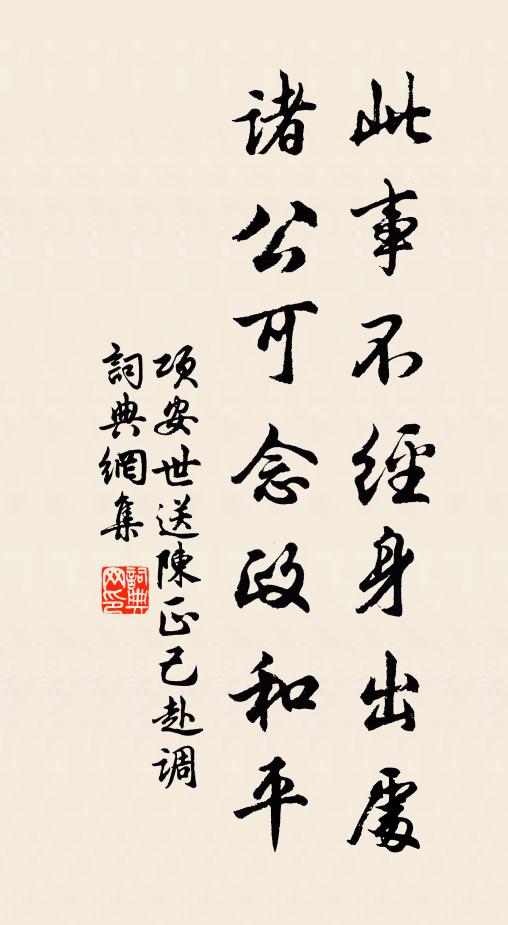 此事不經身出處
諸公可念政和平
項安世送陳正己赴調
詞典網集
詞典網印